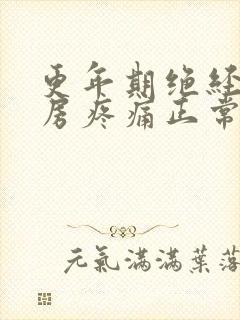 更年期绝经
房疼痛正常
元氣滿滿葉落